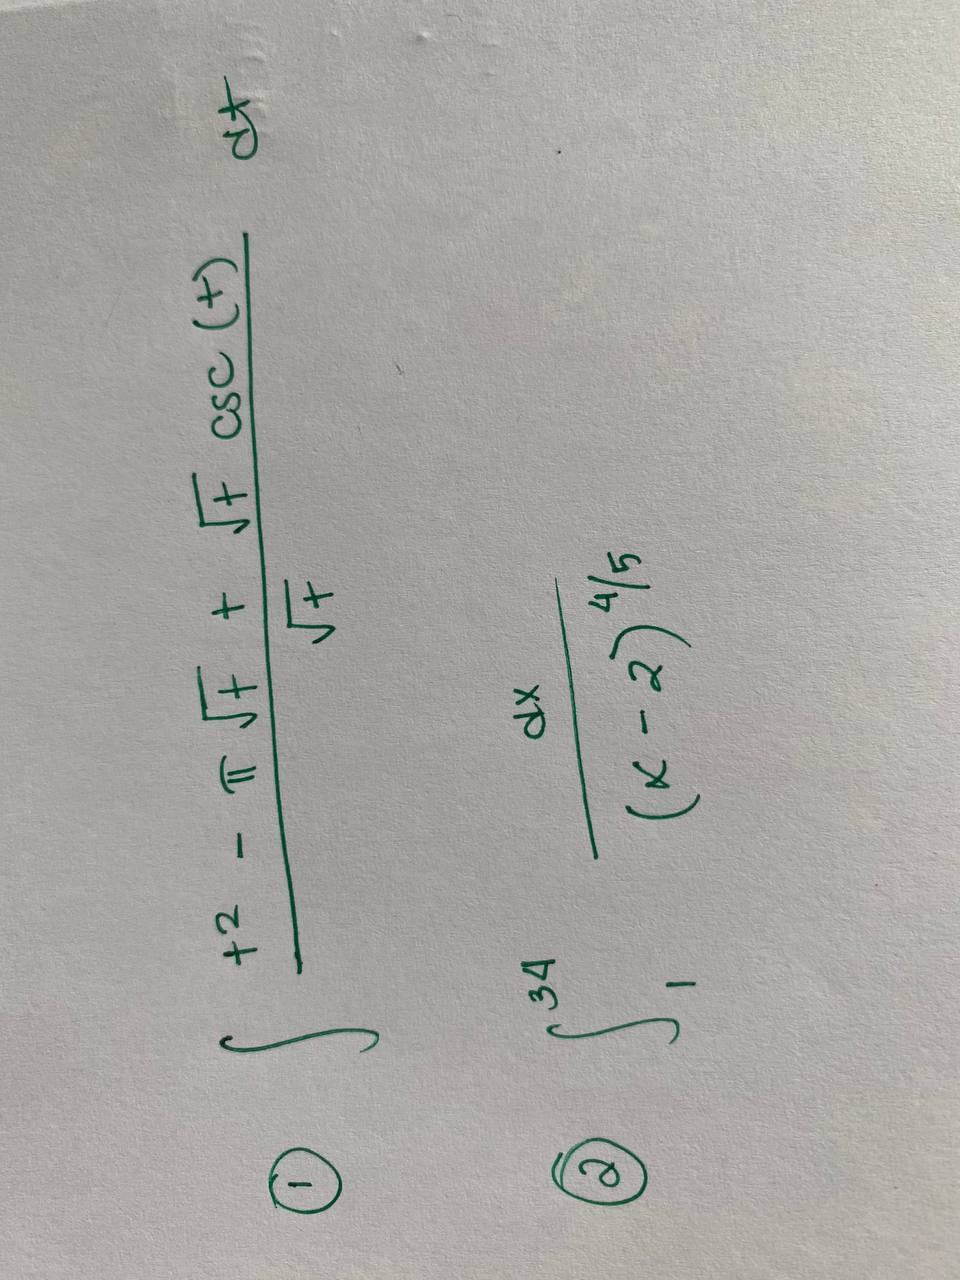 ① ∫ (t² - π√t + √t csc(t)) / √t dt
② ∫₁³⁴ dx / (x - 2)^(4/5)